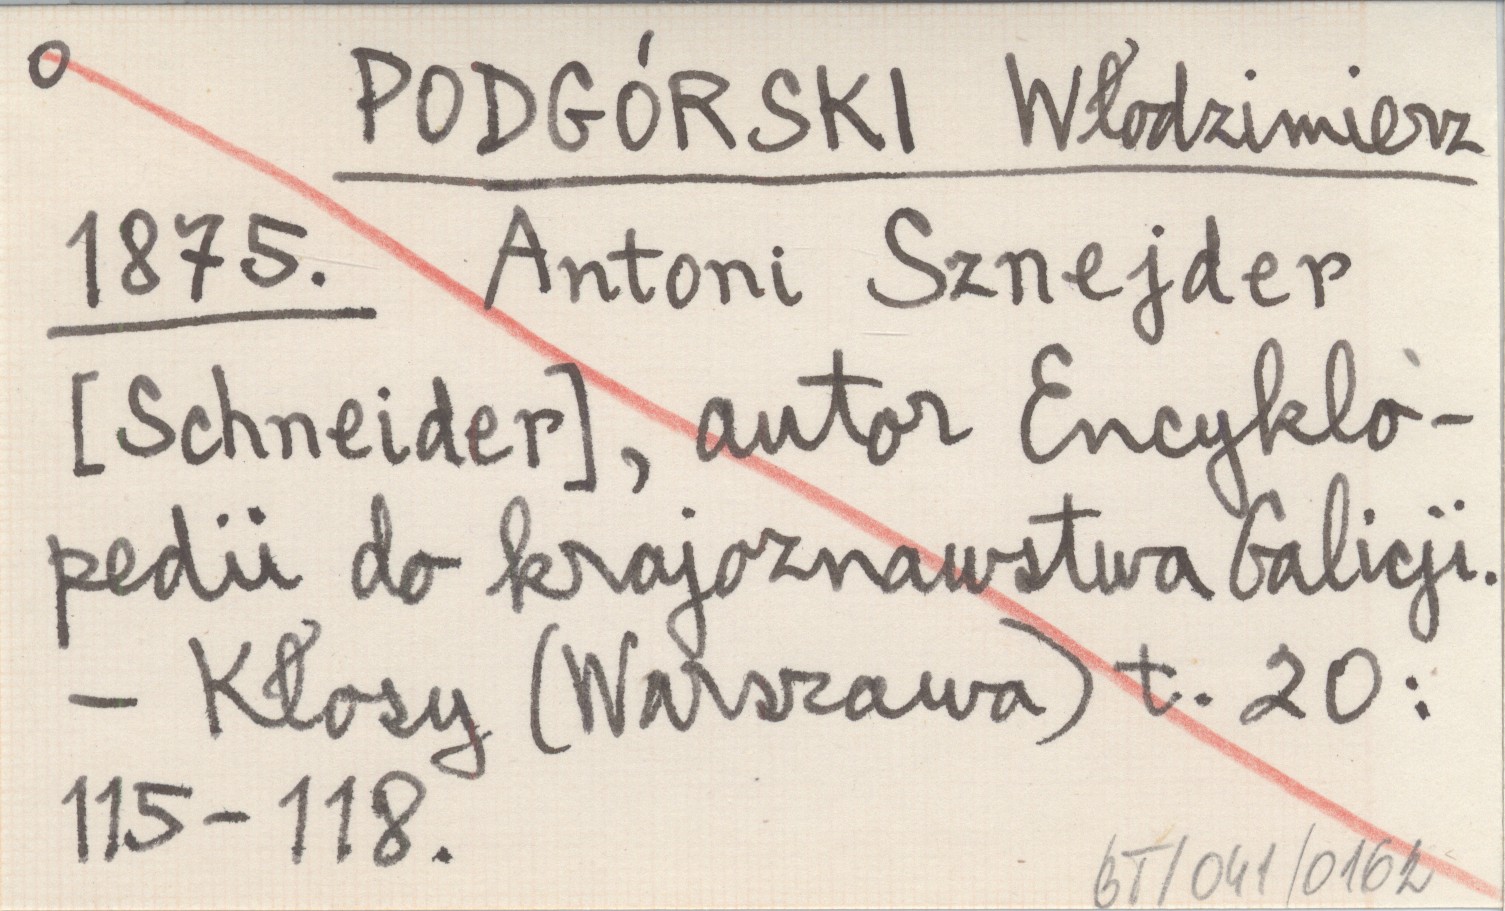 o PODGÓRSKI Włodzimierz
1875. Antoni Sznejder
[Schneider], autor Encyklo-
pedii do krajoznawstwa Galicji.
- Kłosy (Warszawa) t. 20:
115-118.
BT/041/0162